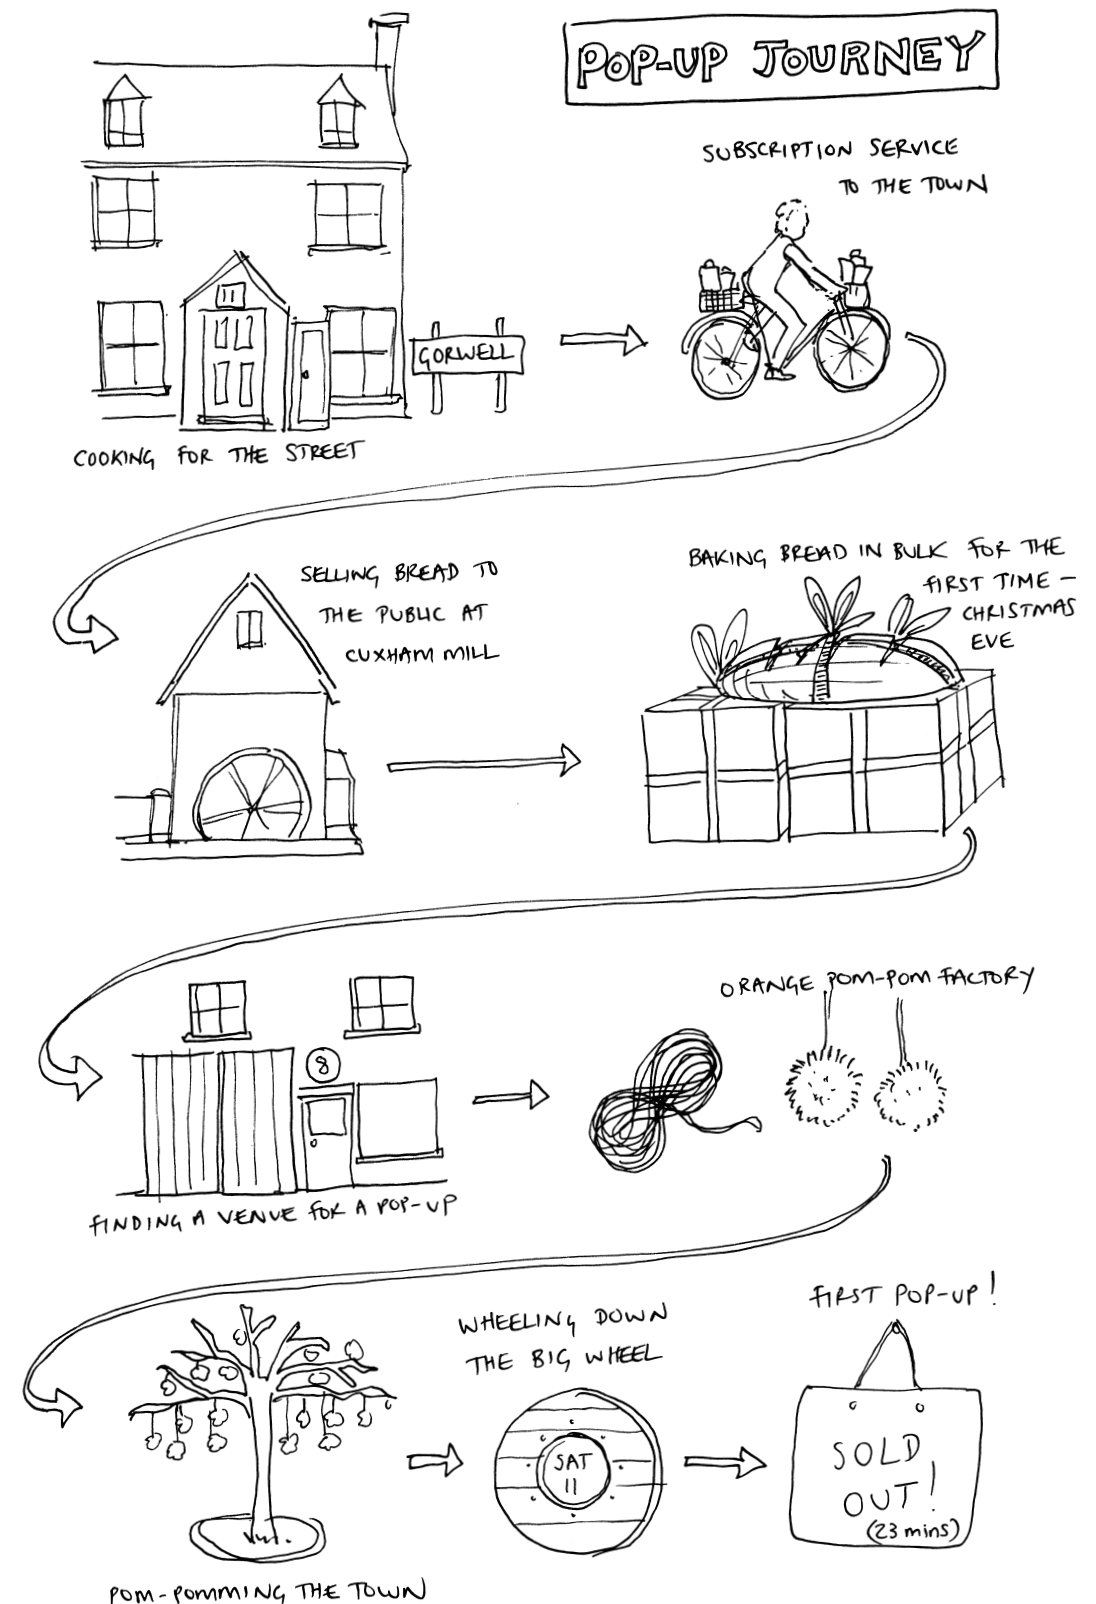 POP-UP JOURNEY
SUBSCRIPTION SERVICE
TO THE TOWN
11
GORWELL
COOKING FOR THE STREET
SELLING BREAD TO
THE PUBLIC AT
CUXHAM MILL
BAKING BREAD IN BULK FOR THE
FIRST TIME –
CHRISTMAS
EVE
8
FINDING A VENUE FOR A POP-UP
ORANGE POM-POM FACTORY
POM-POMMING THE TOWN
WHEELING DOWN
THE BIG WHEEL
SAT
11
FIRST POP-UP!
SOLD
OUT!
(23 mins)